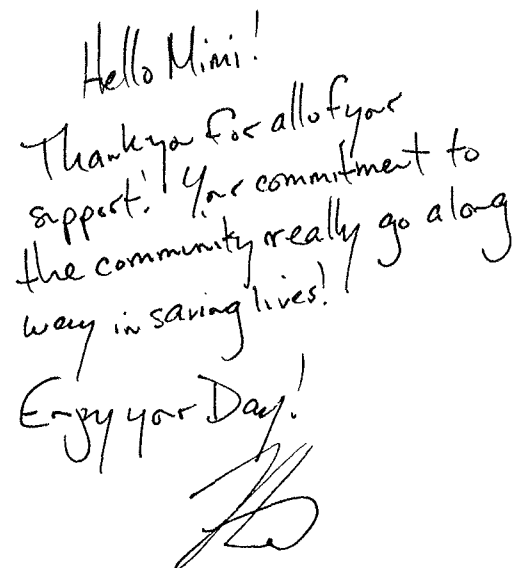 Hello Mimi!
Thank you for all of your
support! Your commitment to
the community really go a long
way in saving lives!
Enjoy your Day!